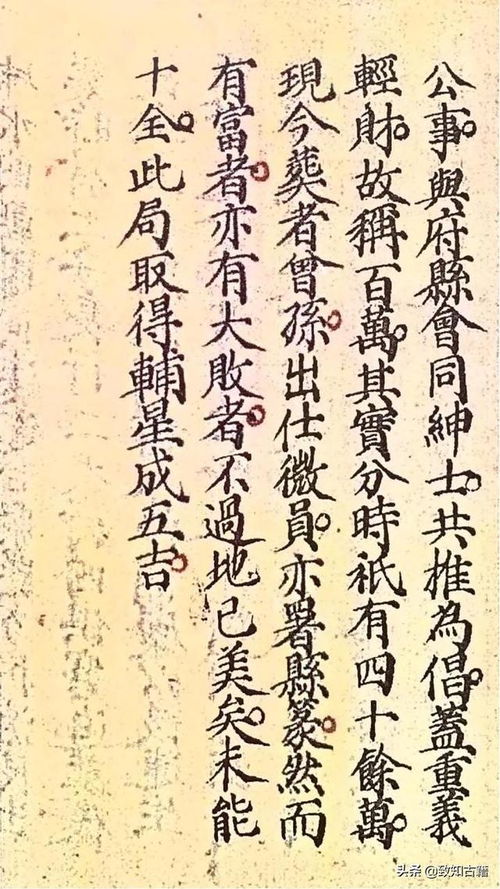 公事與府縣會同紳士共推為倡蓋重義
輕財故稱百萬其實分時祇有四十餘萬
現今葬者曾孫出仕微員亦署縣篆然而
有富者亦有大敗者不過地已美矣未能
十全此局取得輔星成五吉
头条@致知古籍